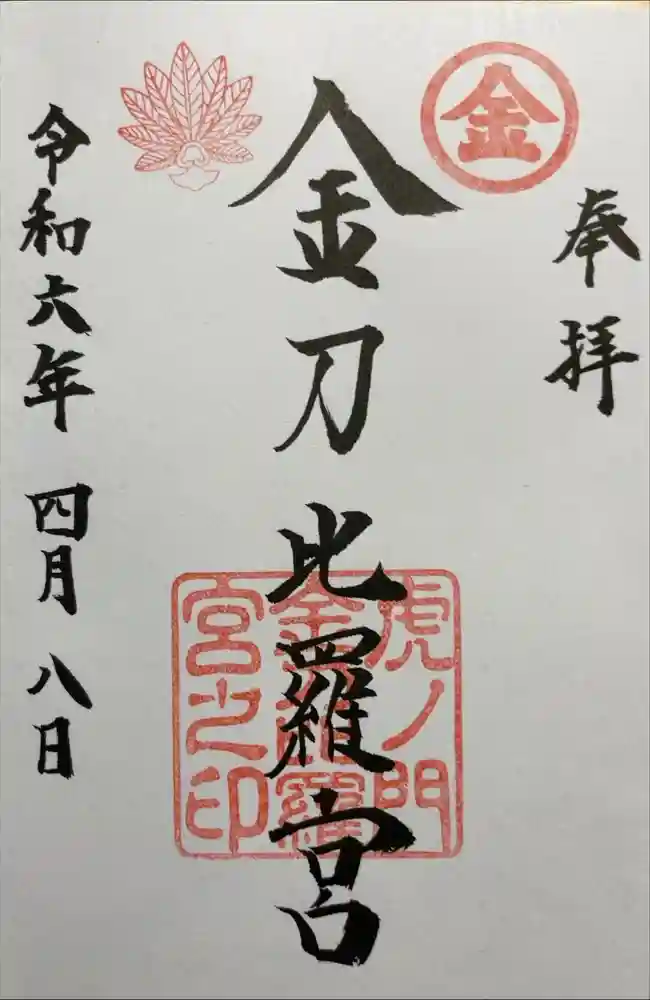 奉拝
金
金刀比羅宮
虎ノ門
金刀比羅
宮之印
令和六年 四月 八日